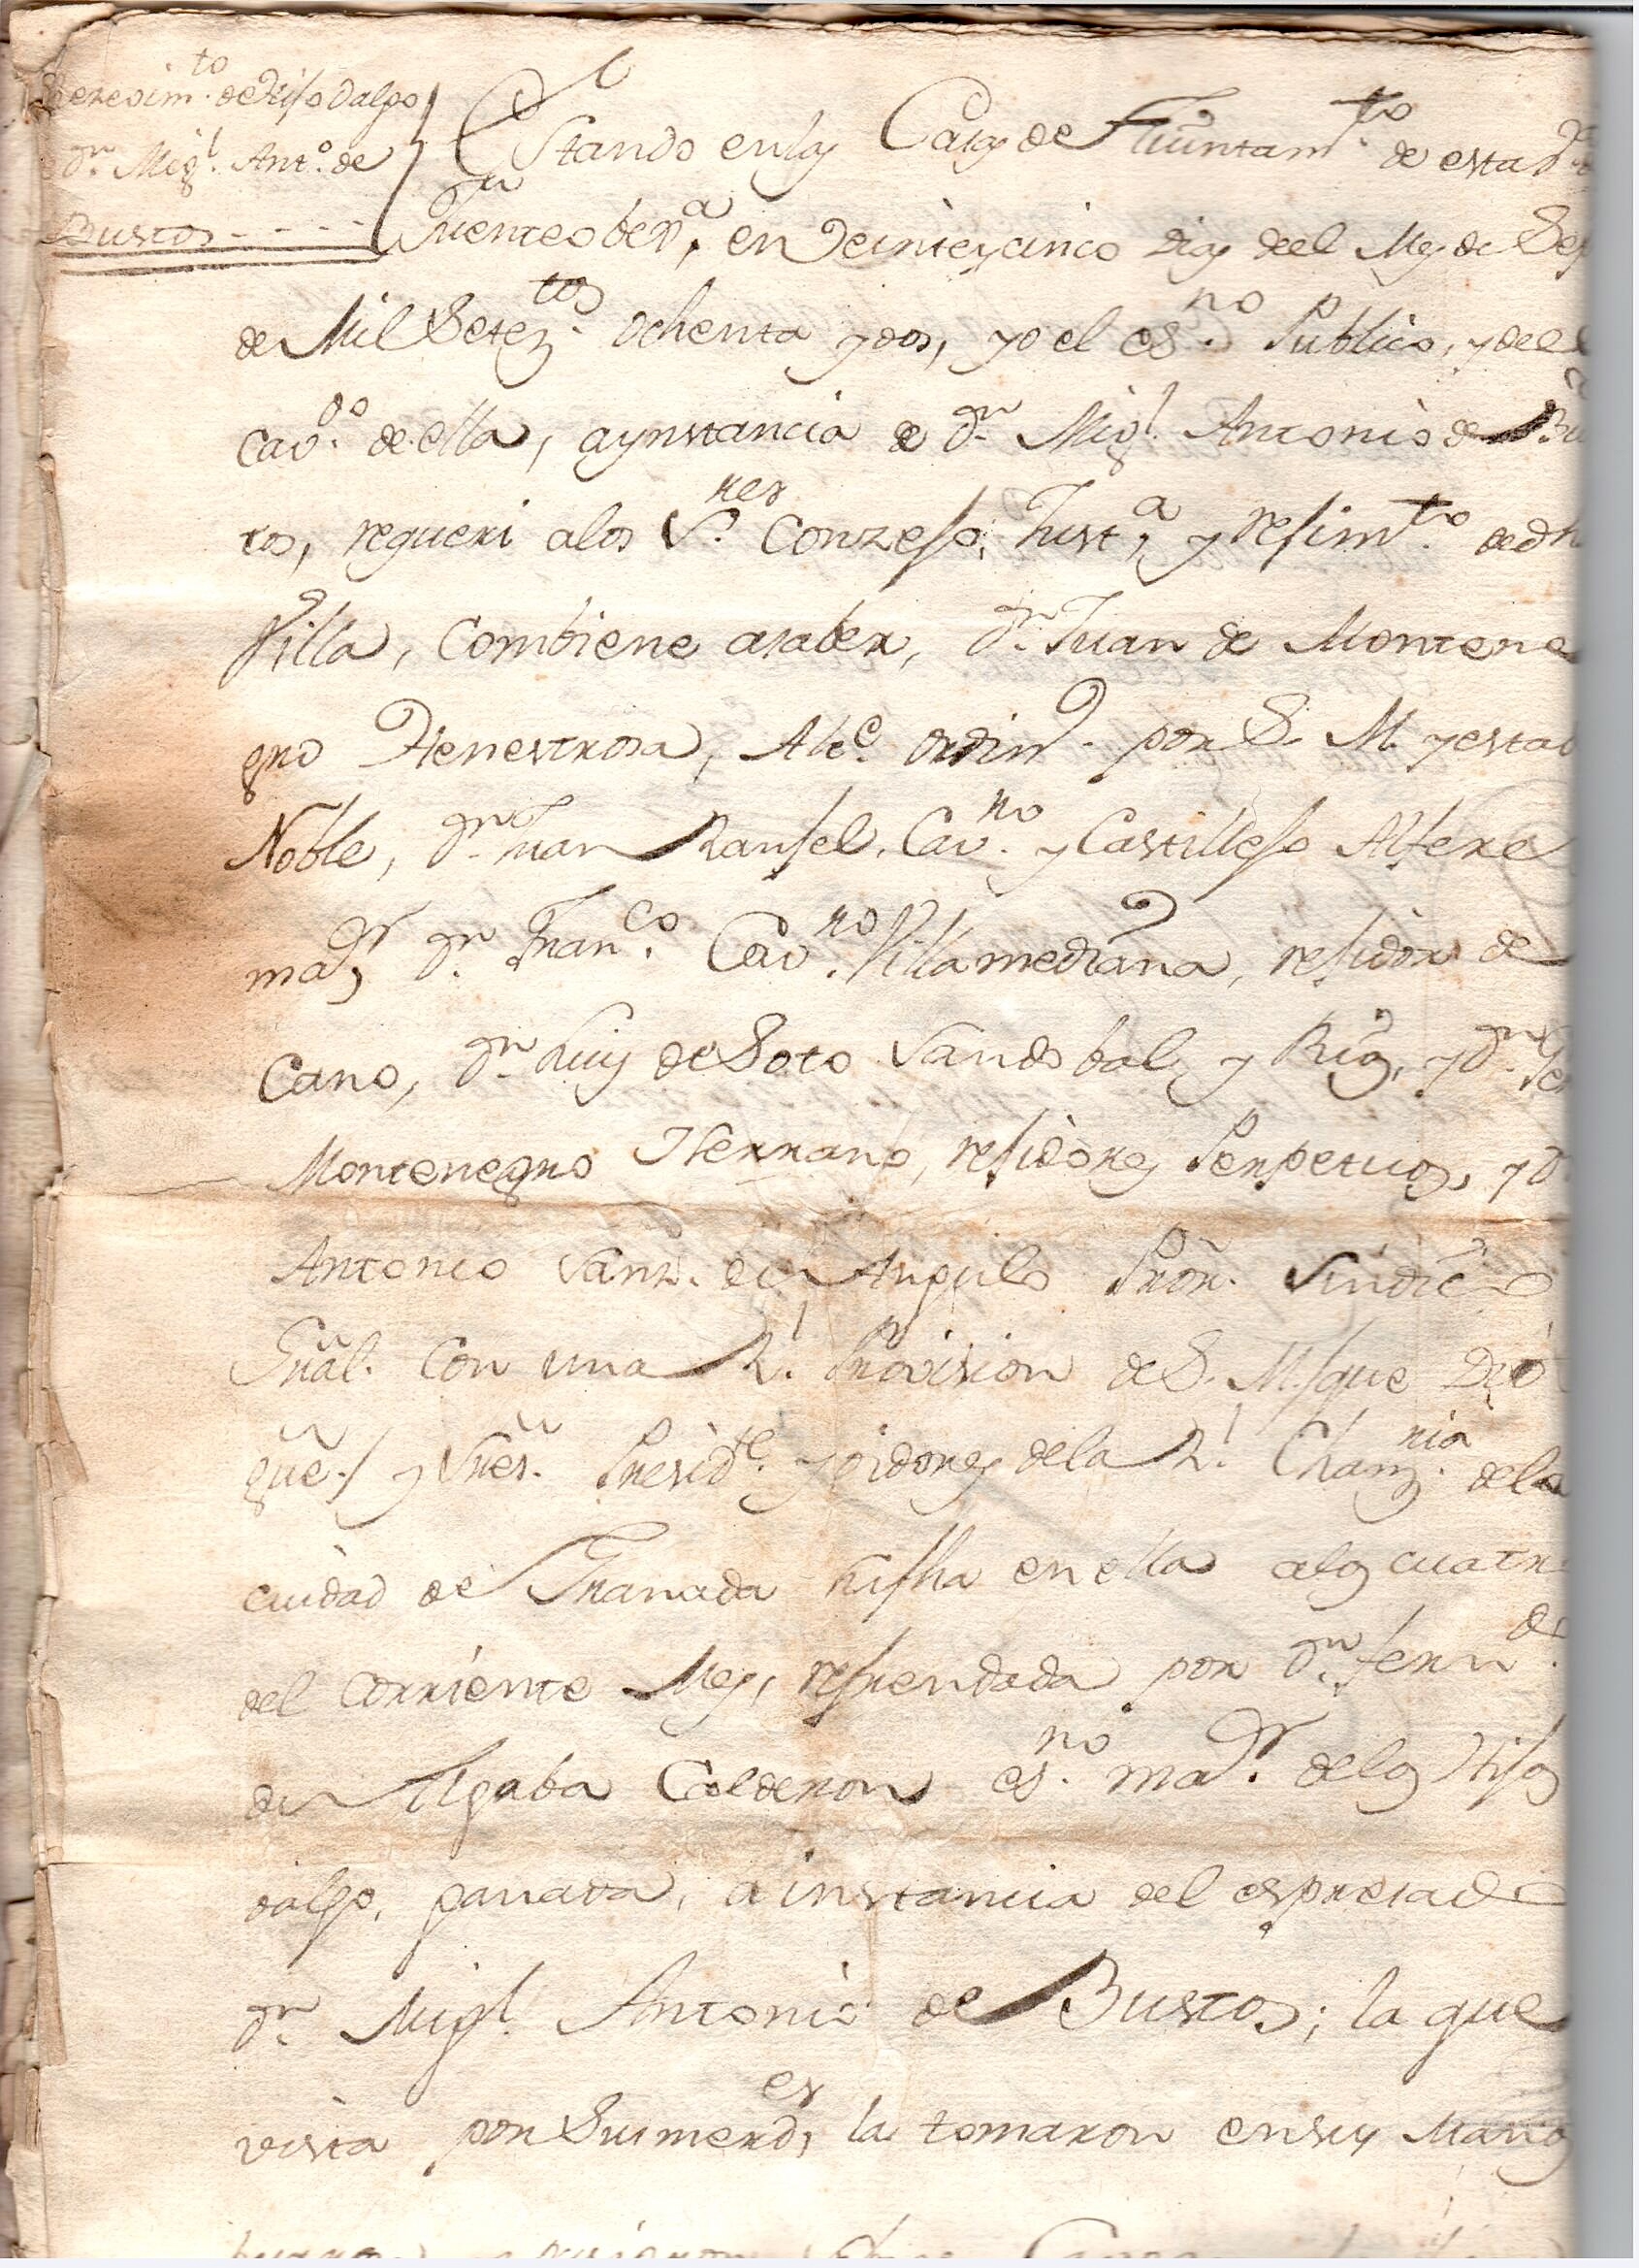 de Hijo Dalgo
Dn. Migl. Anto. de
Bustos - - - -
Estando en las Casas de Aiuntamto. de esta
Fuenteobexa. en Veinte y cinco dias de el Mes de Sep
de Mil Seteztos. ochenta y dos, yo el esno. Publico, y de el
Cavdo. de ella, a ynstancia de Dn. Migl. Antonio de Bu
tos, requeri a los Sres. Conzejo, Justa. y rejimto. de dh
Villa, combiene asaber, Dn. Juan de Montene
gro Henestrosa, Alce. ordino. por S. M. y estad
Noble, Dn. Juan Ranjel, Cavno. y Castillejo Alfere
mayr. Dn. Franco. Cavno. Villamediana, rejidor de
Cano, Dn. Luis de Soto Sandobal y Rios, y Dn.
Montenegro Herrano, rejidores Perpetuos, y D
Antonio Sanz. de Angulo Pror. Sindico
Gral. Con una Rl. Provision de S. M. (que Dios
gue.) y Sres. Preside. y oidores de la Rl. Chanznia. de la
ciudad de Granada en ella a los cuatro
del corriente Mes, refrendada por Dn. Fernde.
de Algaba Calderon esno. mayr. de los Hijos
dalgo, ganada, a instancia del espresado
Dn. Migl. Antonio de Bustos; la que
vista por Sus mercdes, la tomaron en sus Manos